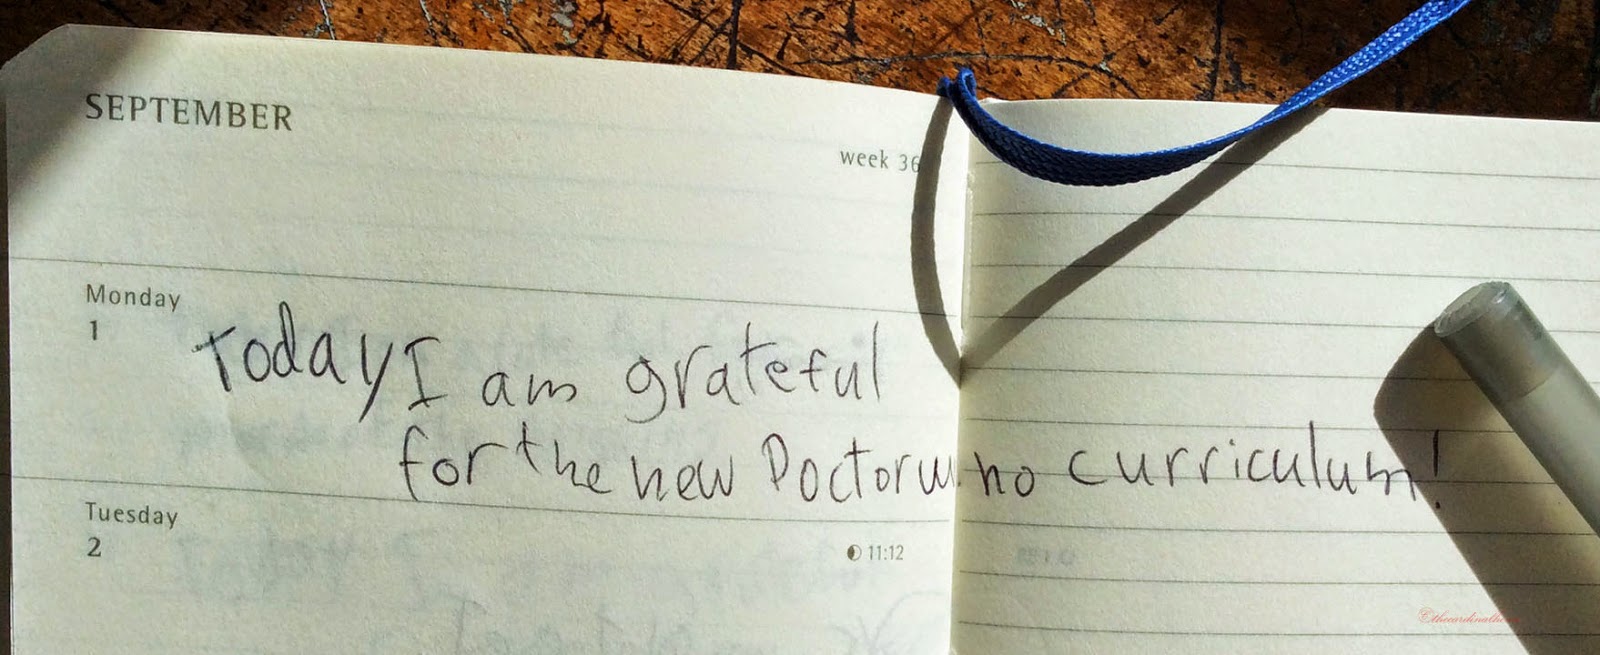 SEPTEMBER
week 36
Monday
1
Today I am grateful
for the new Doctorwho curriculum!
Tuesday
2
11:12